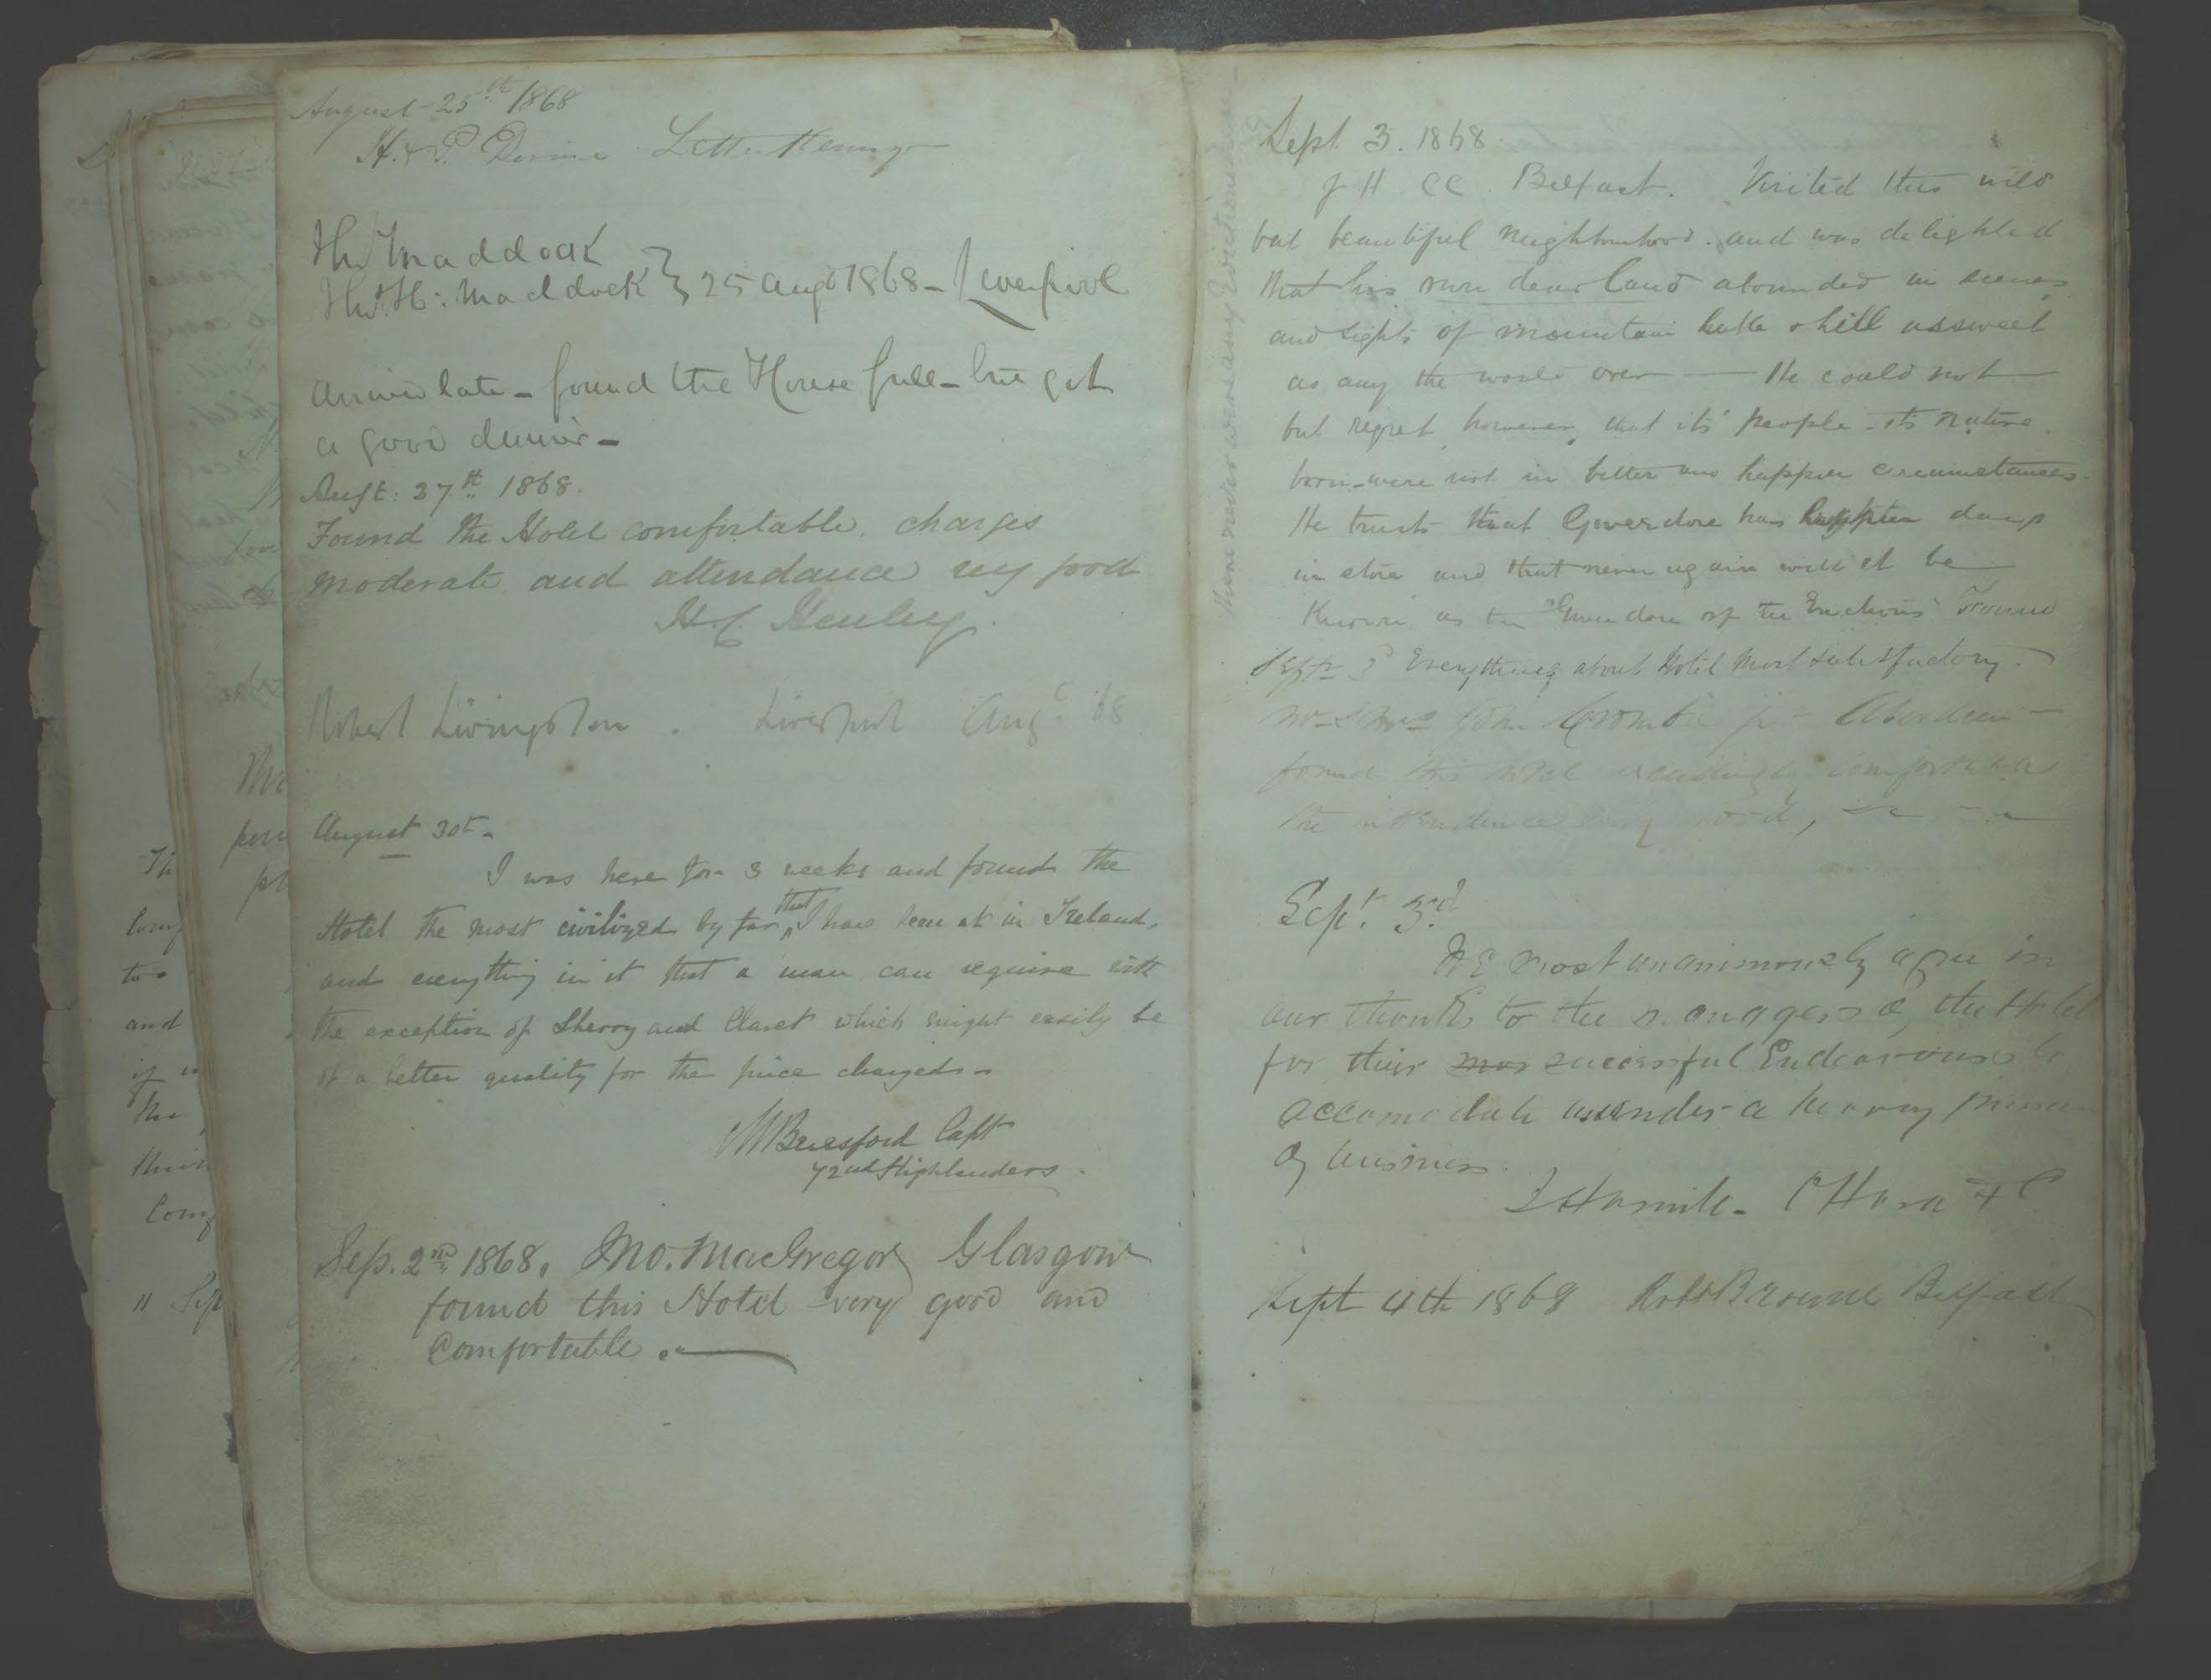 August 25th 1868
H. & P. Devine Letterkenny
Thos Maddock
Thos H: Maddock } 25 Augt 1868 - Liverpool
Arrived late - found the House full - but got
a good dinner -
Augt: 27th 1868.
Found the Hotel comfortable, charges
moderate and attendance very good
H C Henley.
Robert Livingston . Liverpool Aug. 68
August 30th -
I was here for 3 weeks and found the
Hotel the most civilized by far that I have been at in Ireland,
and everything in it that a man can require with
the exception of Sherry and Claret which might easily be
of a better quality for the price charged -
Beresford Capt
72nd Highlanders.
Sep. 2nd 1868, Jno. MacGregor Glasgow
found this Hotel very good and
Comfortable.
Sept 3. 1868.
J H CC. Belfast. Visited this wild
but beautiful neighbourhood. and was delighted
that his own dear land abounded in scenes
and sights of mountain lake & hill as sweet
as any the world over — He could not
but regret, however, that its people - its native
born - were not in better and happier circumstances.
He trusts that Gweedore has happier days
in store and that never again will it be
known as the "Gweedore of the Evictions"
there never were any Evictions
Sept 3d Everything about Hotel most satisfactory.
Mr & Mrs John Crombie jr - Aberdeen -
found this hotel exceedingly comfortable
the attendance very good,
Sept. 3d
We most unanimously agree in
our thanks to the managers of the Hotel
for their mos successful Endeavours to
accomodate us under a heavy
of business.
O'Hara
Sept 4th 1868 Robt Browne Belfast